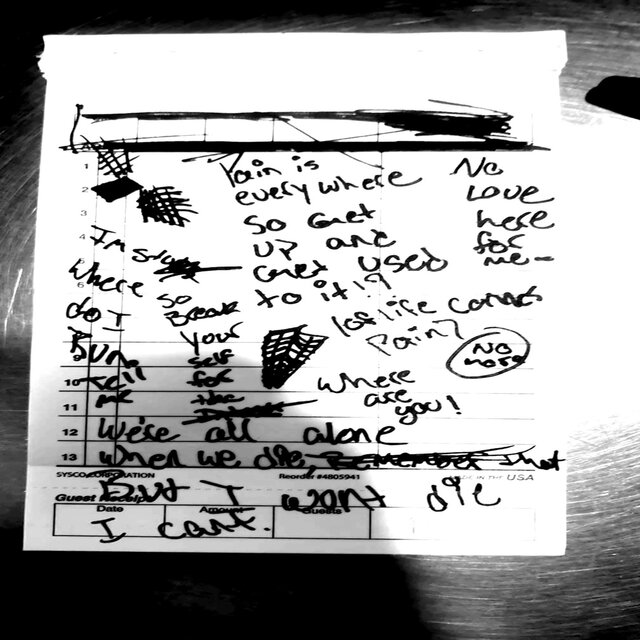 Pain is
everywhere
So Get
UP and
Get used
to it!?
No
LOVE
here
for
me-
I'm
Where
do I
Run
Tell
me
so
Break
Your
self
for
the
of life comes
Pain?
No
more
Where
are
you!
We're all alone
When we die, Remember that
But I wont die
I cant.
1
2
3
4
5
6
10
11
12
13
SYSCO CORPORATION
Reorder #4805941
MADE IN THE USA
Guest Receipt
Date
Amount
Guests